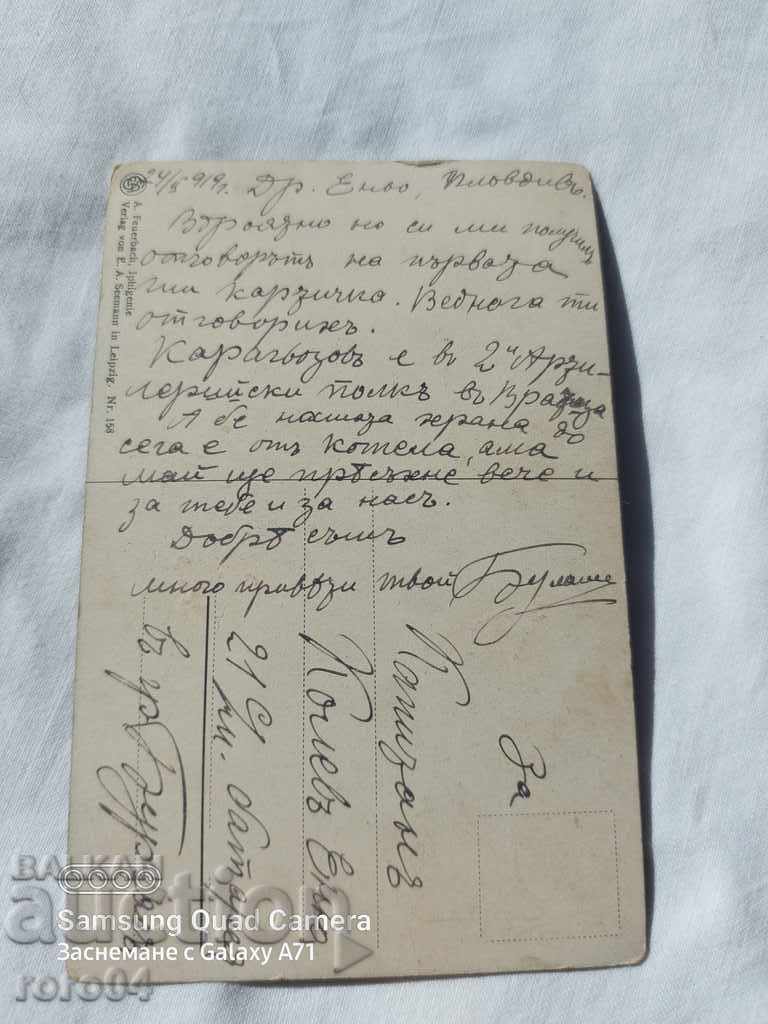 24/5 919 г. Др. Еньо, Пловдивъ.
Вѣроятно но си ми получилъ
отговорътъ на първата
ти картичка. Веднога ти
отговорихъ.
Карагьозовъ е въ 2й Арти-
лерийски полкъ въ Вратца
А бе нашата храна до
сега е отъ котела, ама
май ще прѣсъхне вече и
за тебе и за насъ.
Добрѣ съмъ
много привѣти твой
A. Feuerbach, Iphigenie
Verlag von E. A. Seemann in Leipzig. Nr. 158
За
Капитанъ
Колевъ Еньо
21
батарея
въ гр.
БАЛКАН
auction
Samsung Quad Camera
Заснемане с Galaxy A71
roro04